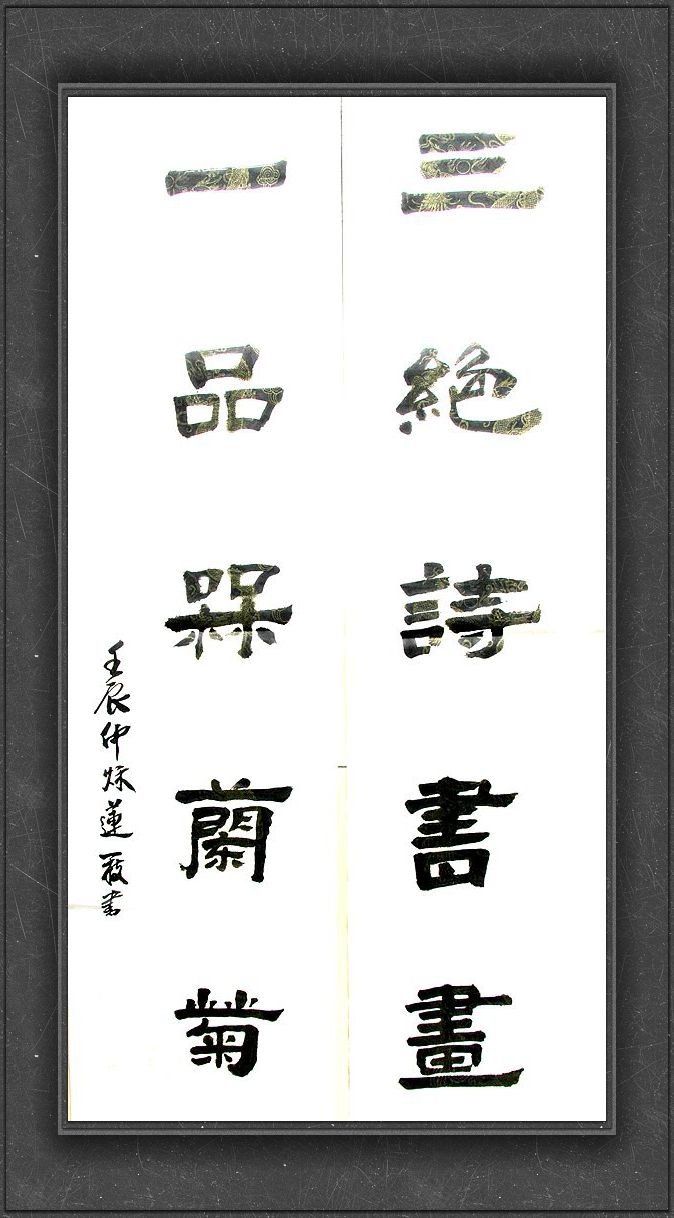 三絕詩書畫
一品槑蘭菊
壬辰仲秌蓮書